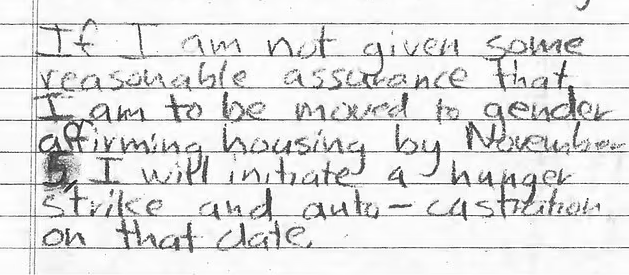 If I am not given some
reasonable assurance that
I am to be moved to gender
affirming housing by November
5, I will initiate a hunger
strike and auto-castration
on that date.